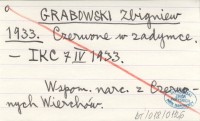 GRABOWSKI Zbigniew
1933. Czerwone w zadymce.
– IKC 7 IV 1933.
Wspom. narc. z Czerwo-
nych Wierchów.